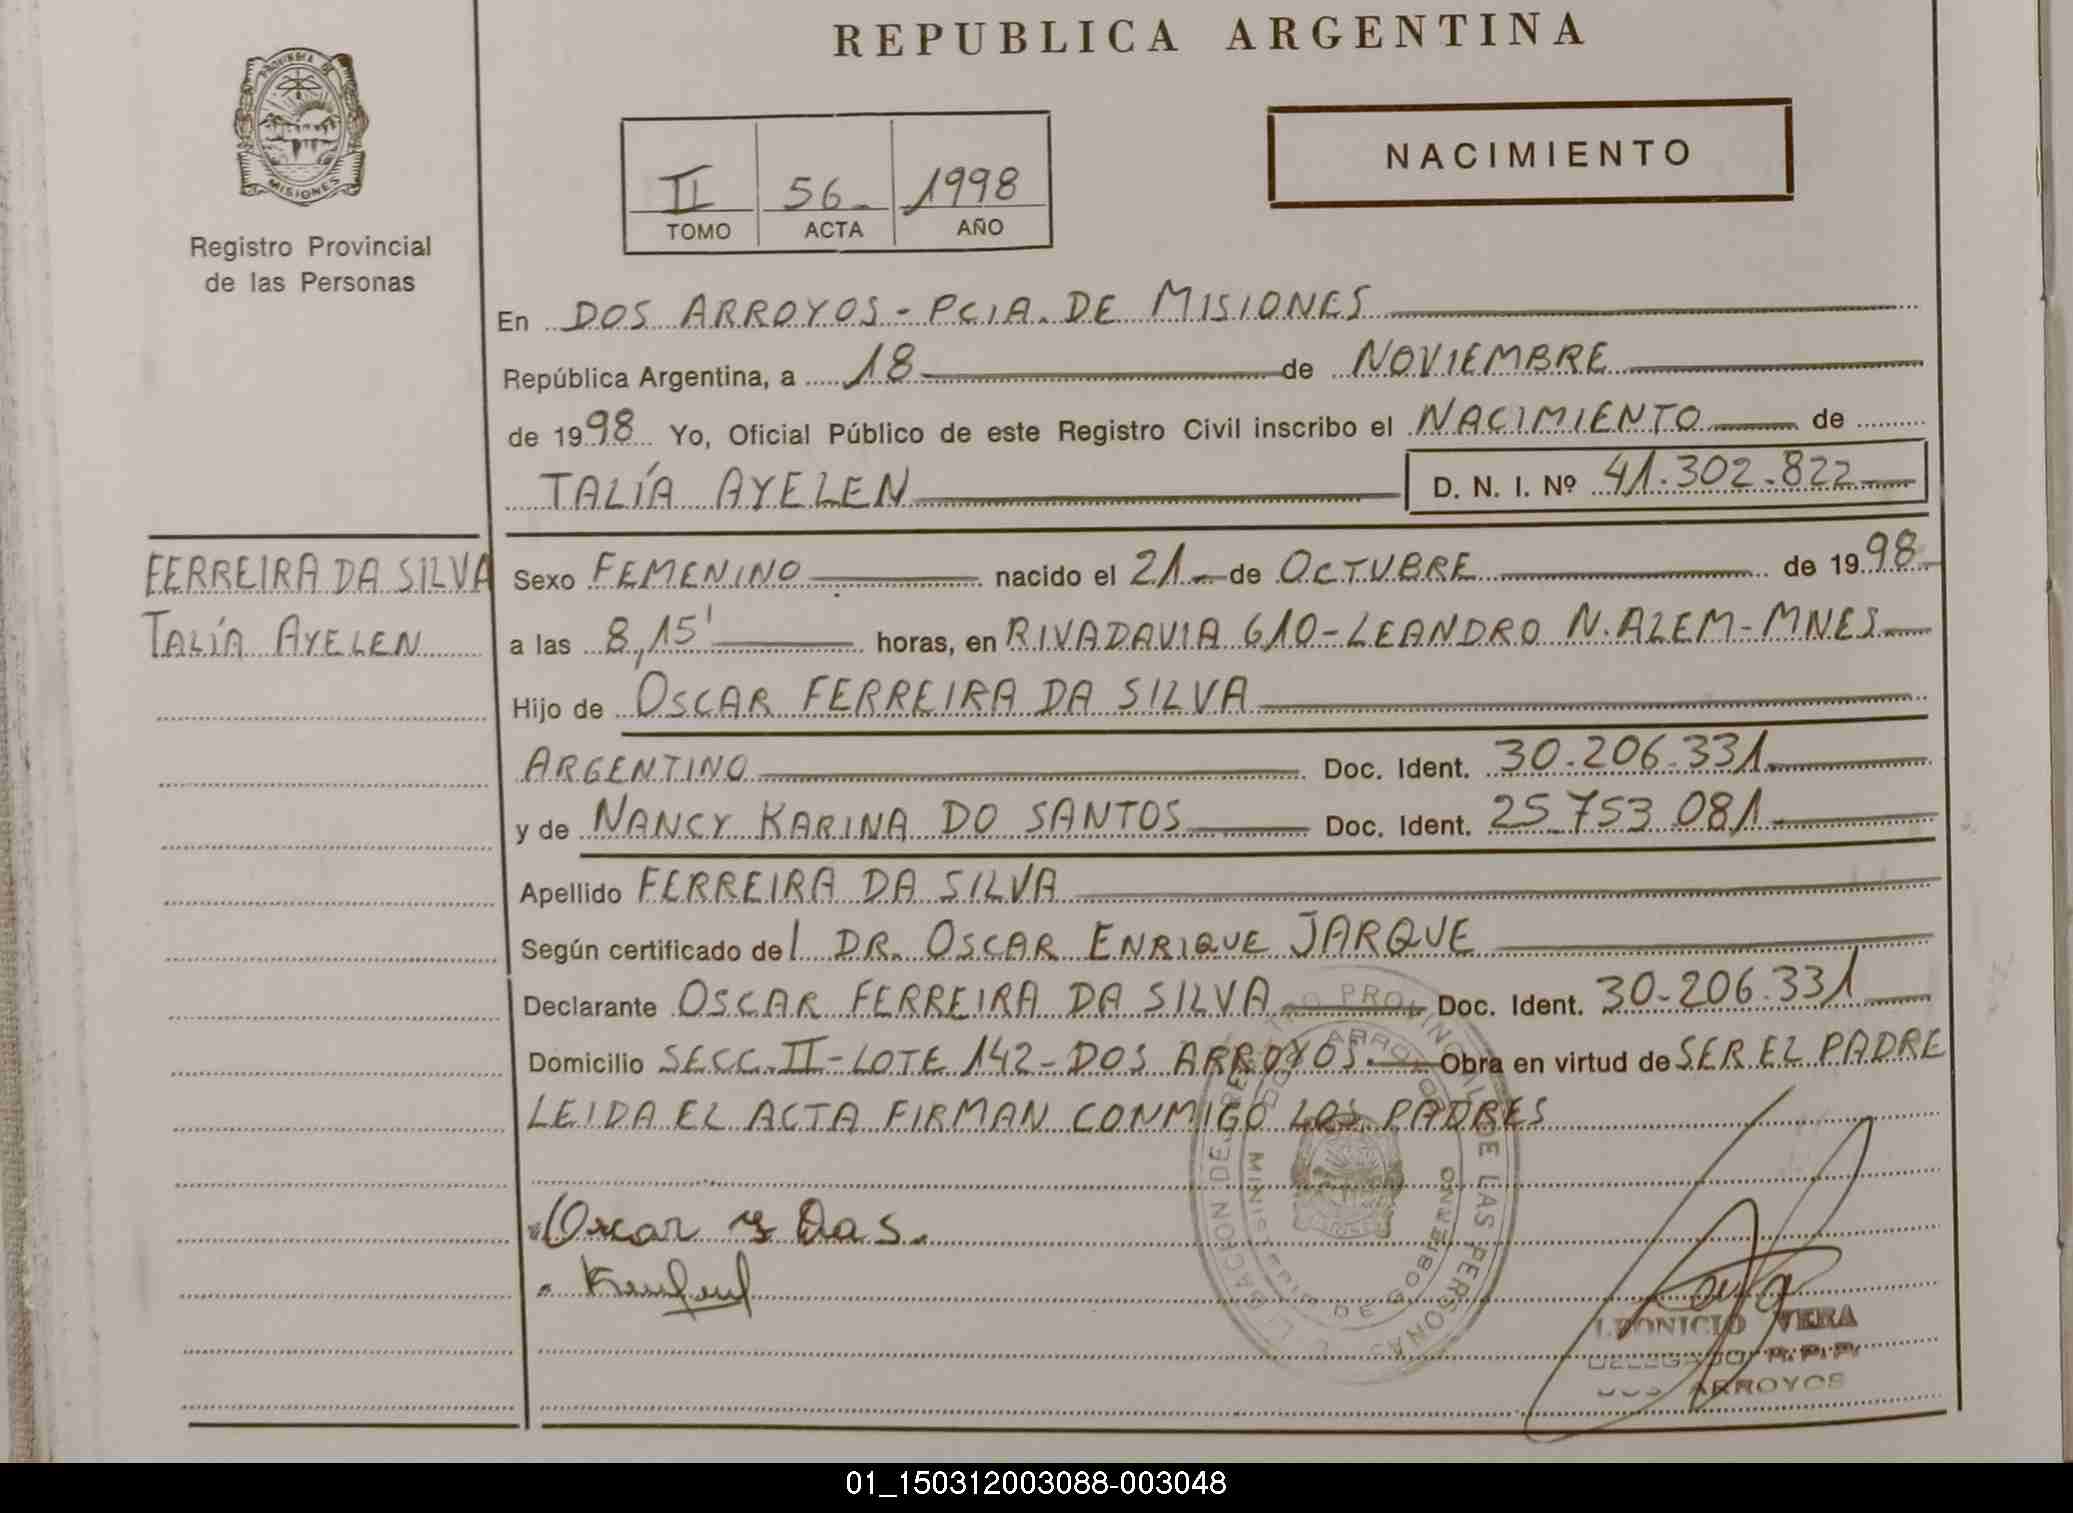 REPUBLICA ARGENTINA
PROVINCIA DE MISIONES
Registro Provincial
de las Personas
II 56 1998
TOMO ACTA AÑO
NACIMIENTO
En DOS ARROYOS - PCIA. DE MISIONES
República Argentina, a 18 de NOVIEMBRE
de 1998 Yo, Oficial Público de este Registro Civil inscribo el NACIMIENTO de
TALÍA AYELEN D. N. I. Nº 41.302.822
FERREIRA DA SILVA
TALÍA AYELEN
Sexo FEMENINO nacido el 21 de OCTUBRE de 1998
a las 8,15' horas, en RIVADAVIA 610-LEANDRO N. ALEM-MNES
Hijo de OSCAR FERREIRA DA SILVA
ARGENTINO Doc. Ident. 30.206.331
y de NANCY KARINA DO SANTOS Doc. Ident. 25.753.081
Apellido FERREIRA DA SILVA
Según certificado del DR. OSCAR ENRIQUE JARQUE
Declarante OSCAR FERREIRA DA SILVA Doc. Ident. 30.206.331
Domicilio SECC. II-LOTE 142-DOS ARROYOS. Obra en virtud de SER EL PADRE
LEIDA EL ACTA FIRMAN CONMIGO LOS PADRES
Oscar
MINISTERIO DE GOBIERNO
LEONICIO VERA
DELEGADO R.P.P.
DOS ARROYOS
01_150312003088-003048